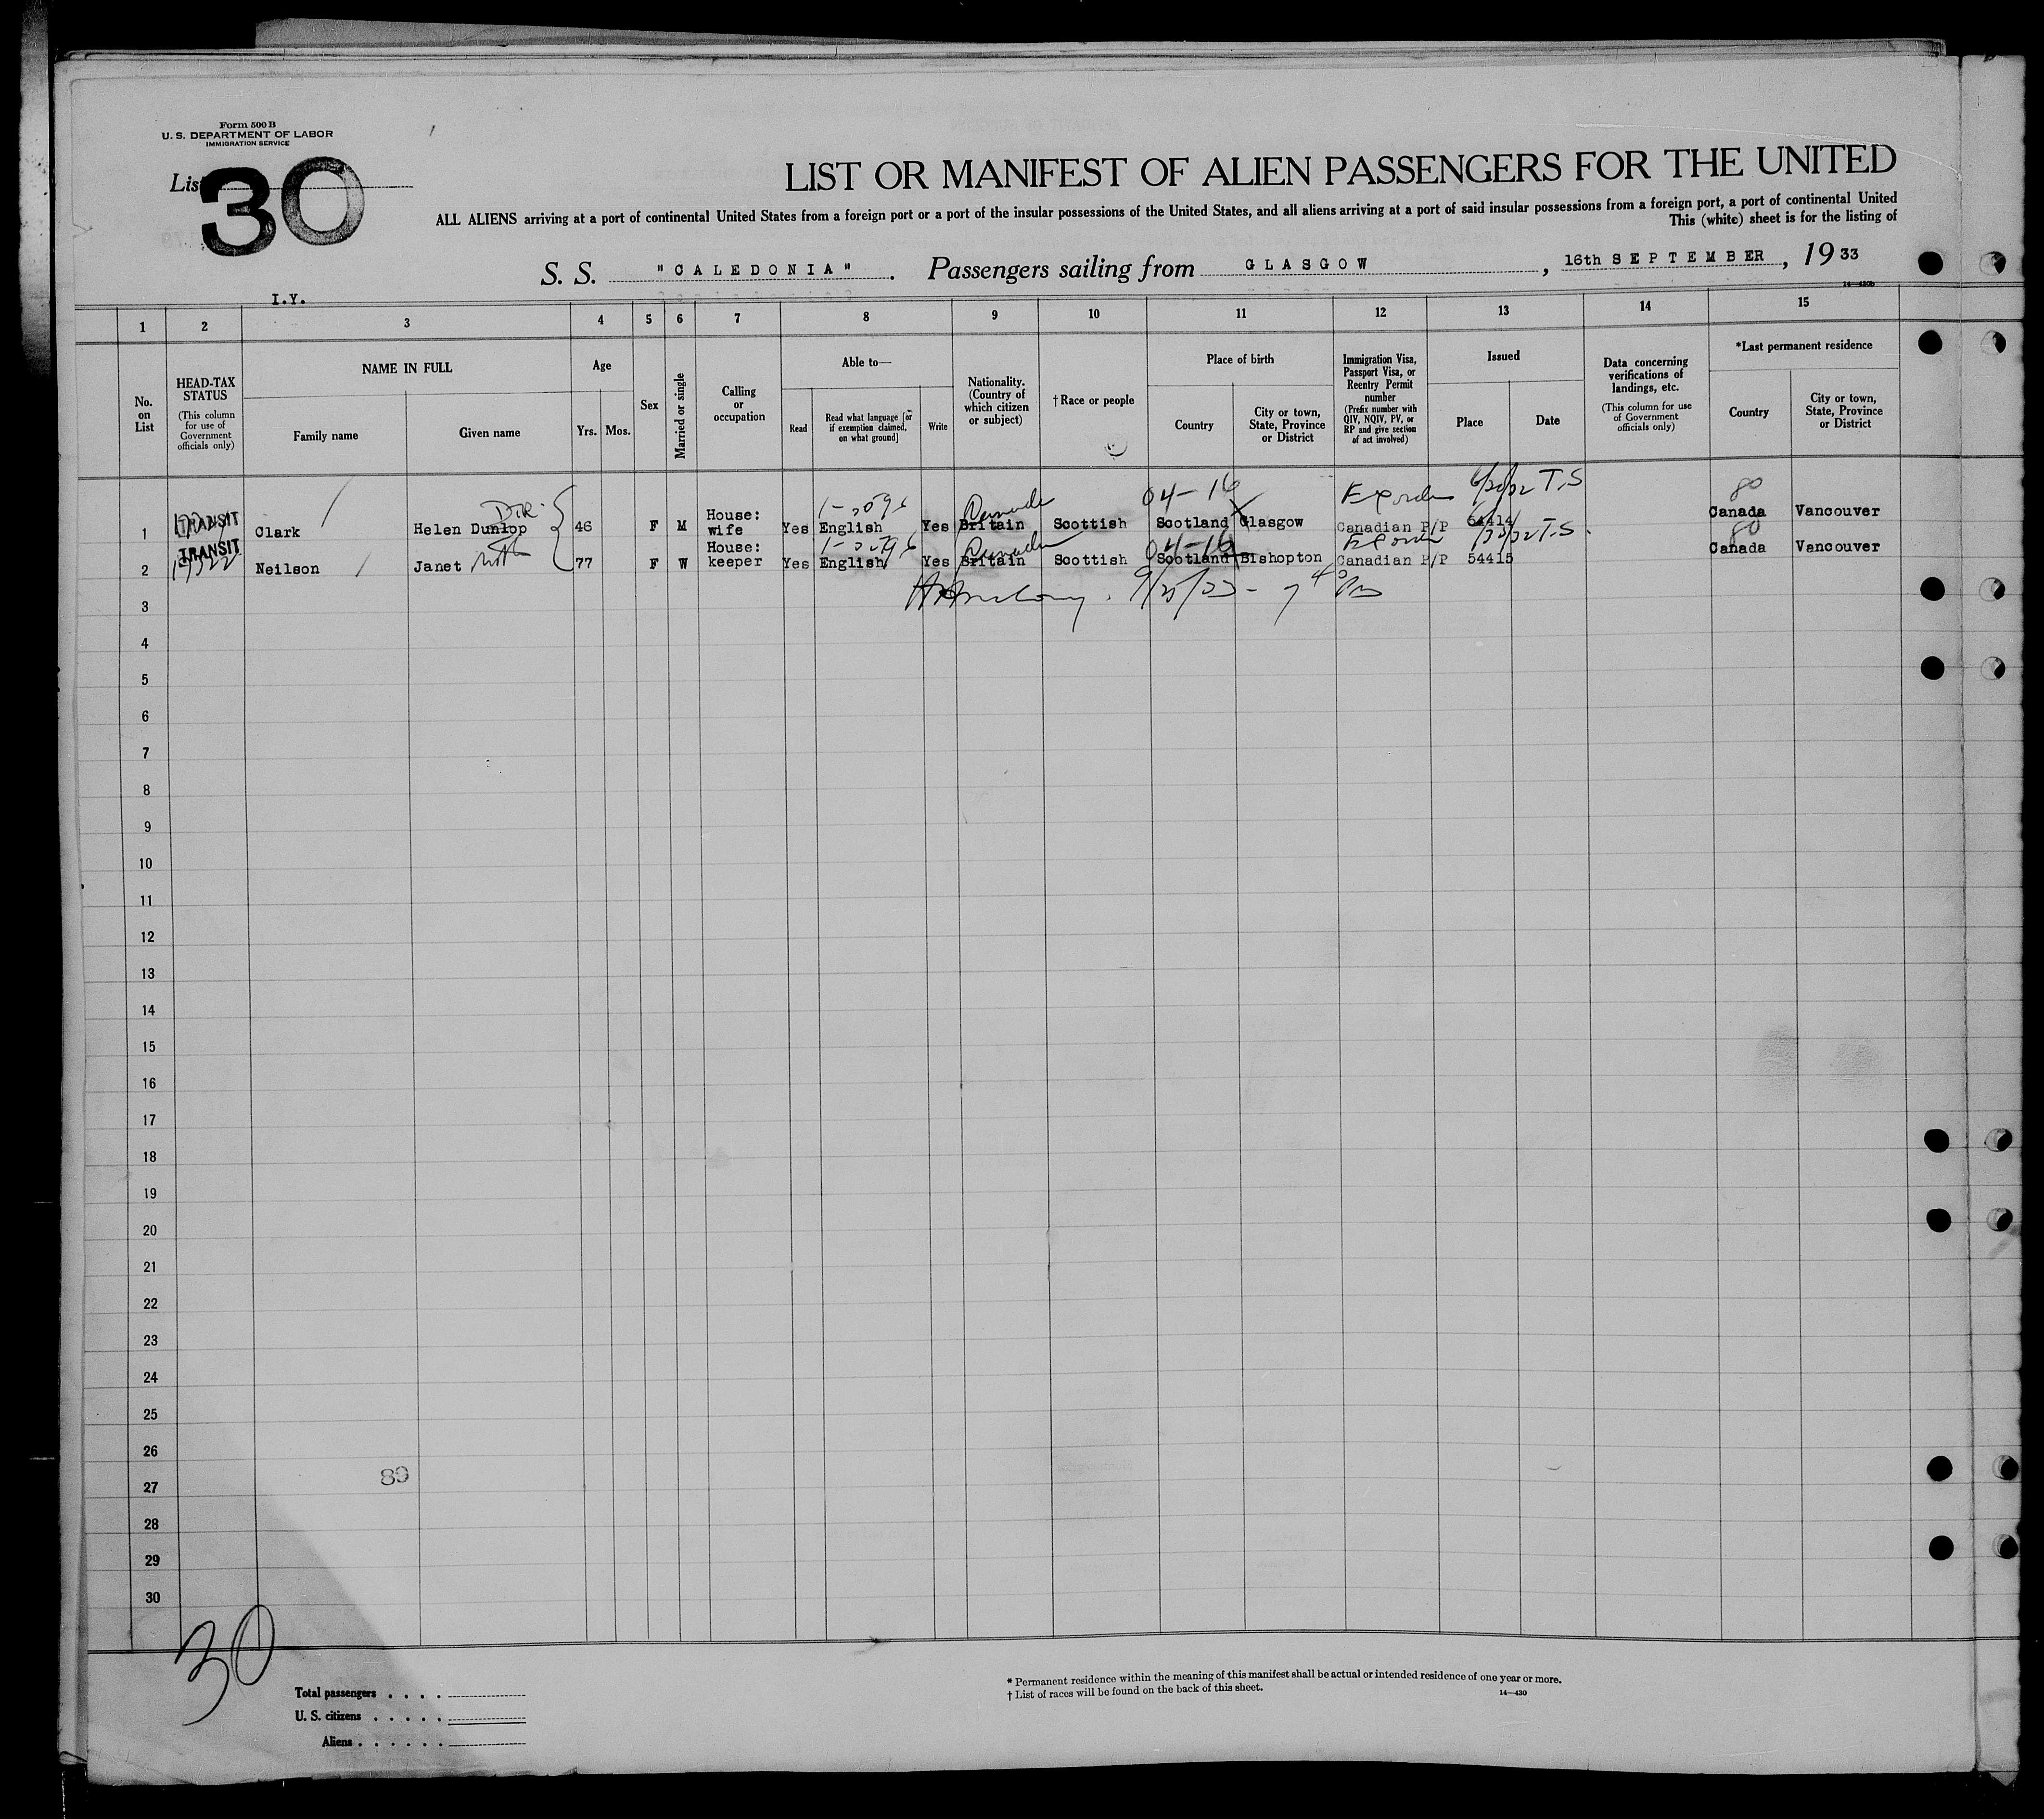 Form 500 B
U. S. DEPARTMENT OF LABOR
IMMIGRATION SERVICE
List 30
LIST OR MANIFEST OF ALIEN PASSENGERS FOR THE UNITED
ALL ALIENS arriving at a port of continental United States from a foreign port or a port of the insular possessions of the United States, and all aliens arriving at a port of said insular possessions from a foreign port, a port of continental United
This (white) sheet is for the listing of
S. S. "CALEDONIA". Passengers sailing from GLASGOW, 16th SEPTEMBER, 19 33
14—430b
I.Y.
1 2 3 4 5 6 7 8 9 10 11 12 13 14 15
No. on List
HEAD-TAX STATUS
(This column for use of Government officials only)
NAME IN FULL
Family name
Given name
Age
Yrs. Mos.
Sex
Married or single
Calling or occupation
Able to—
Read
Read what language [or if exemption claimed, on what ground]
Write
Nationality. (Country of which citizen or subject)
† Race or people
Place of birth
Country
City or town, State, Province or District
Immigration Visa, Passport Visa, or Reentry Permit number
(Prefix number with QIV, NQIV, PV, or RP and give section of act involved)
Issued
Place
Date
Data concerning verifications of landings, etc.
(This column for use of Government officials only)
*Last permanent residence
Country
City or town, State, Province or District
04-16 T.S 80
1 TRANSIT Clark Helen Dunlop 46 F M House: wife Yes English Yes Britain Canada Scottish Scotland Glasgow Canadian P/P 54414 Canada Vancouver
04-16 T.S. 80
2 TRANSIT Neilson Janet 77 F W House: keeper Yes English Yes Britain Canada Scottish Scotland Bishopton Canadian P/P 54415 Canada Vancouver
3
4
5
6
7
8
9
10
11
12
13
14
15
16
17
18
19
20
21
22
23
24
25
26
89
27
28
29
30
30
Total passengers . . . .
U. S. citizens . . . . .
Aliens . . . . . .
* Permanent residence within the meaning of this manifest shall be actual or intended residence of one year or more.
† List of races will be found on the back of this sheet.
14—430